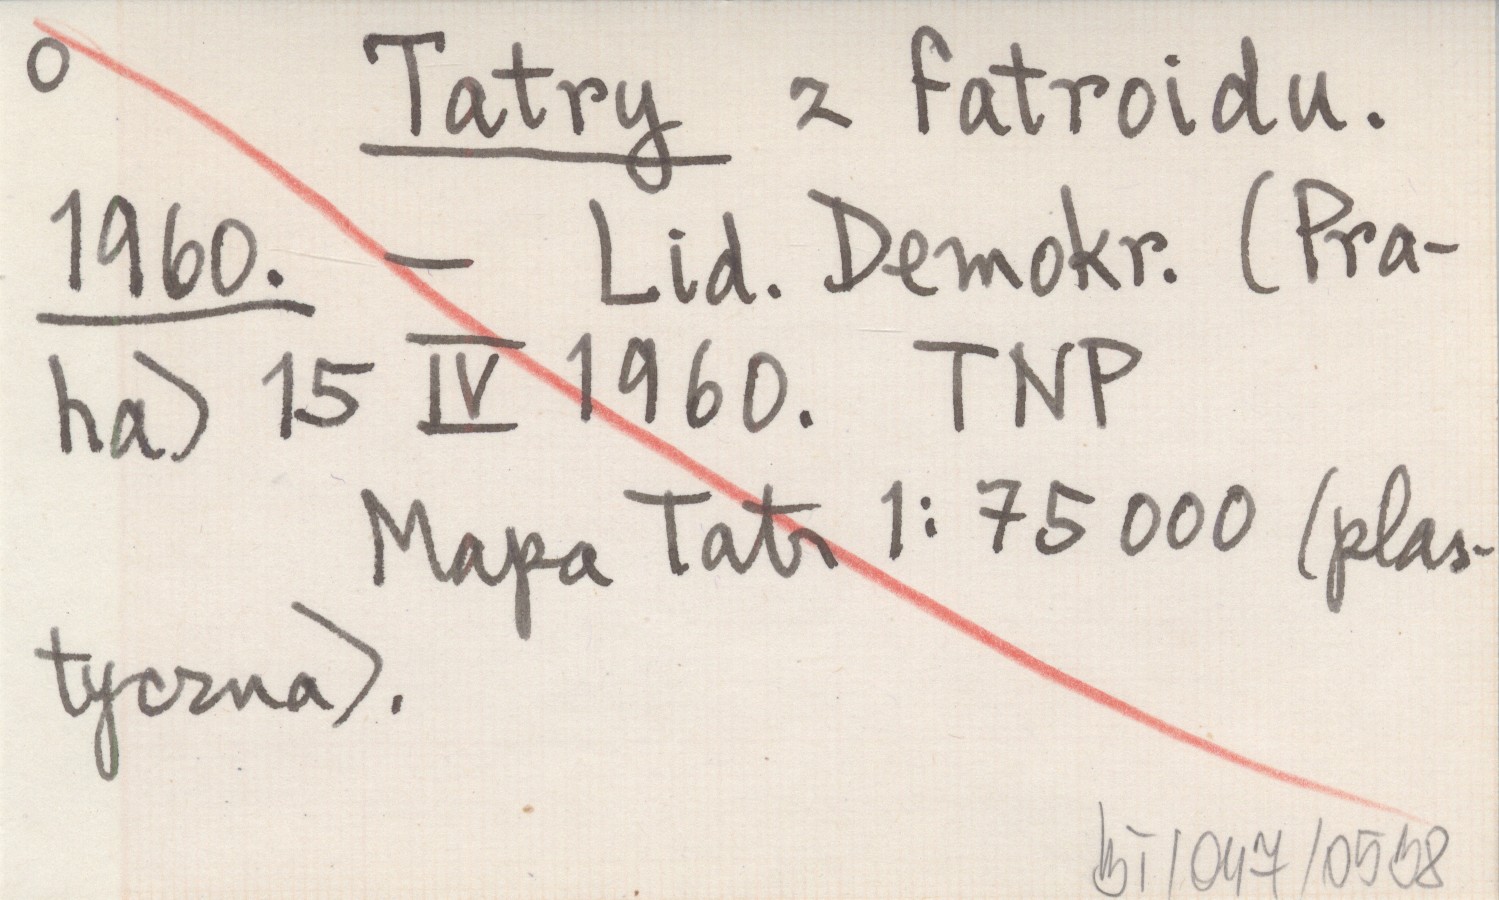 o Tatry z fatroidu.
1960. — Lid. Demokr. (Pra-
ha) 15 IV 1960. TNP
Mapa Tatr 1: 75 000 (plas-
tyczna).